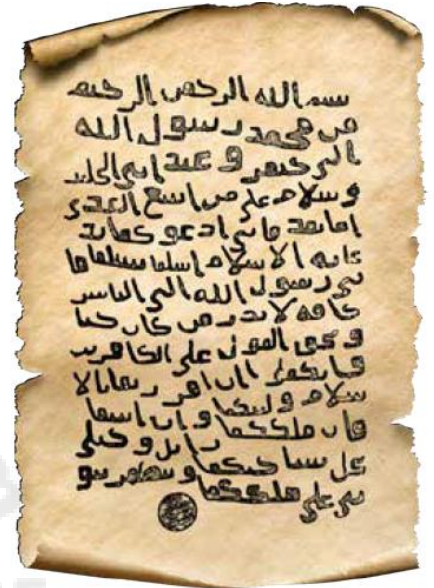 بسم الله الرحمن الرحيم
من محمد رسول الله
الى جيفر و عبد ابني الجلند
و سلام على من اتبع الهدى
اما بعد فاني ادعو كما بد
عايه الاسلام اسلما تسلما فا
ني رسول الله الى الناس
كافه لانذر من كان حيا
و يحق القول على الكافرين
فانكما ان اقررتما بالا
سلام وليتكما و ان ابيتما
فان ملككما زايل و خيلي
تحل بساحتكما و تظهر نبو
تي على ملككما